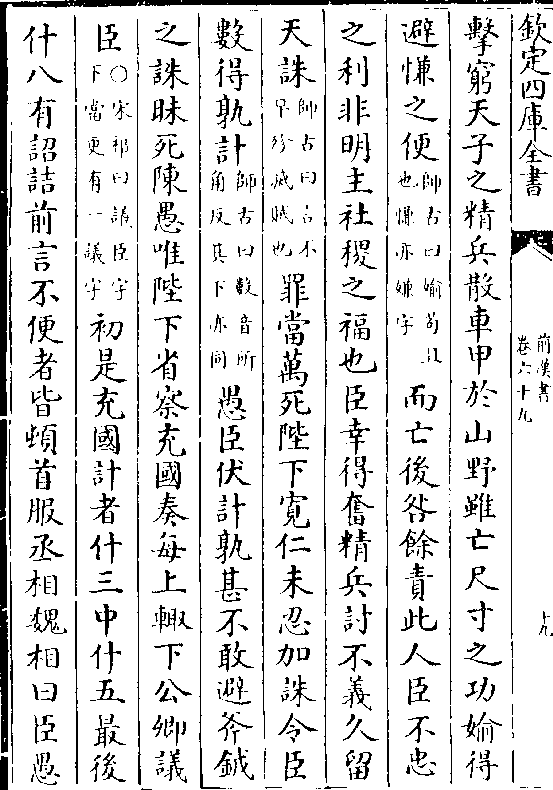 欽定四庫全書
前漢書
卷六十九
十九
擊窮天子之精兵散車甲於山野雖亡尺寸之功媮得
避慊之便師古曰媮苟且也慊亦嫌字而亡後咎餘責此人臣不忠
之利非明主社稷之福也臣幸得奮精兵討不義久留
天誅師古曰言不早殄滅賊也罪當萬死陛下寛仁未忍加誅令臣
數得孰計師古曰數音所角反其下亦同愚臣伏計孰甚不敢避斧鉞
之誅昧死陳愚唯陛下省察充國奏每上輙下公卿議
臣○宋祁曰議臣字下當更有一議字初是充國計者什三中什五最後
什八有詔詰前言不便者皆頓首服丞相魏相曰臣愚